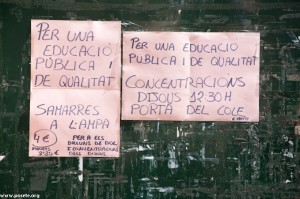 PER UNA
EDUCACIÓ
PÚBLICA I
DE QUALITAT
SAMARRES
A L'AMPA
4€
PER A ELS
DILLUNS DE DOL
I CONCENTRACIONS
DELS DIJOUS
PER UNA EDUCACIO
PUBLICA I DE QUALITAT
CONCENTRACIONS
DIJOUS 12:30H
PORTA DEL COLE
www.posete.org